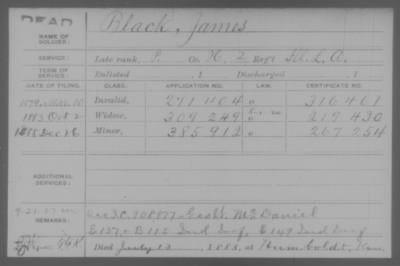 DEAD
NAME OF SOLDIER: Black, James
SERVICE: Late rank, P. Co. H, 2 Reg't Ill. L. A.
TERM OF SERVICE: Enlisted , 1 Discharged , 1
DATE OF FILING. CLASS. APPLICATION NO. LAW. CERTIFICATE NO.
10 Invalid, 271 104 316 461
1883 Oct 2 Widow, 309 249 219 430
1888 Dec 26 Minor, 385 912 267 254
ADDITIONAL SERVICES:
REMARKS: McDaniel
B 112 Ind Inf, E 149 Ind Inf
Died July 12, 1882, at Humboldt, Kan.